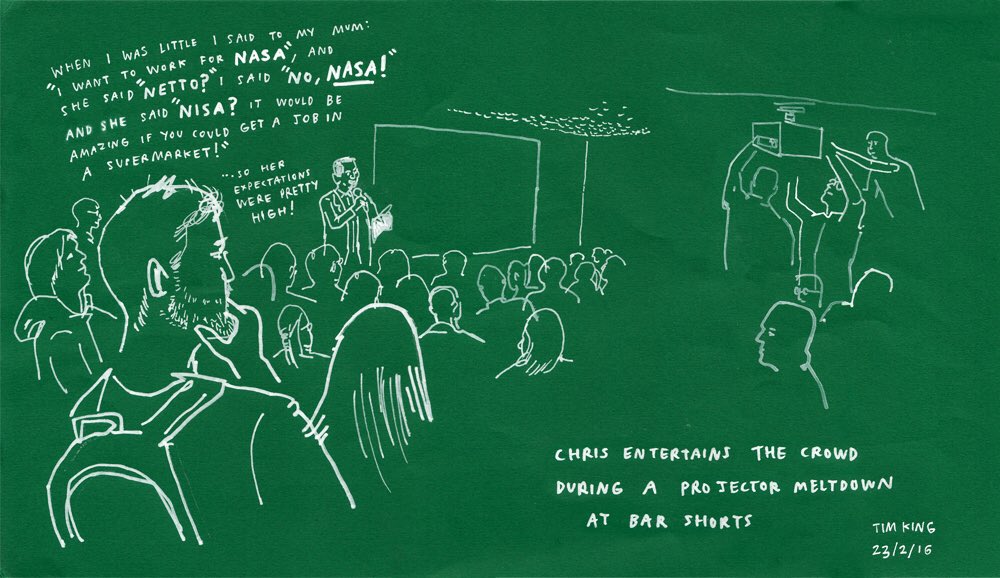 WHEN I WAS LITTLE I SAID TO MY MUM:
"I WANT TO WORK FOR NASA", AND
SHE SAID "NETTO?" I SAID "NO, NASA!"
AND SHE SAID "NISA? IT WOULD BE
AMAZING IF YOU COULD GET A JOB IN
A SUPERMARKET!"
"...SO HER
EXPECTATIONS
WERE PRETTY
HIGH!
CHRIS ENTERTAINS THE CROWD
DURING A PROJECTOR MELTDOWN
AT BAR SHORTS
TIM KING
23/2/16